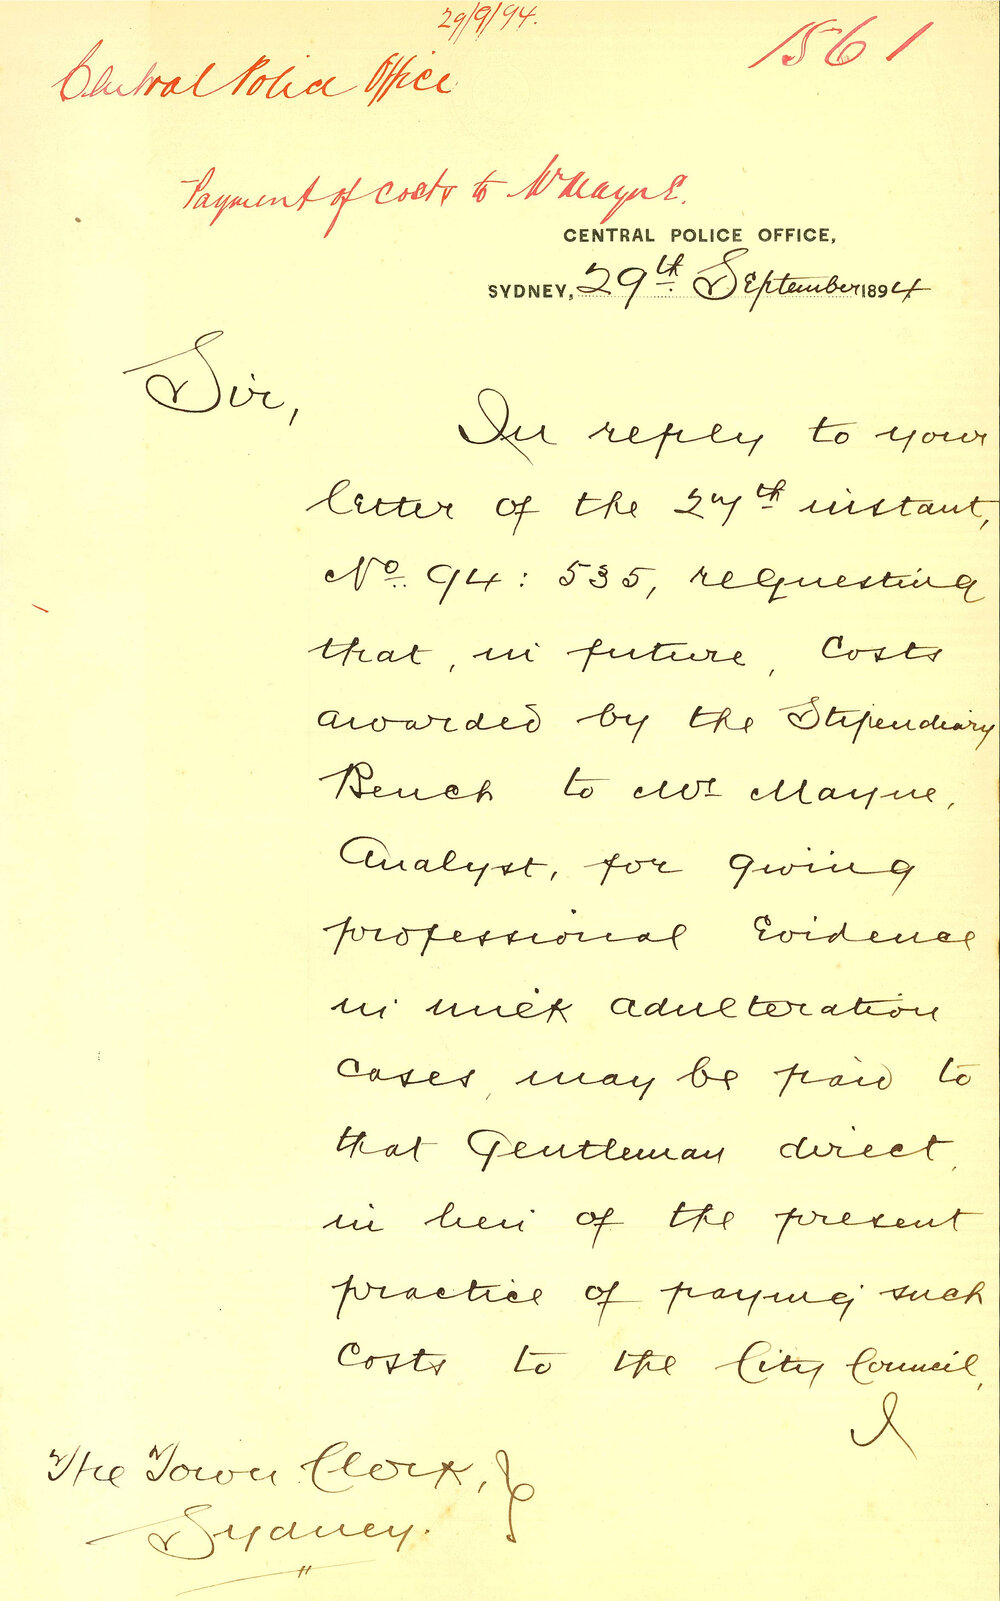 29/9/94.
1561
Central Police Office
Payment of costs to Mr Mayne.
CENTRAL POLICE OFFICE,
SYDNEY, 29th September 1894
Sir,
In reply to your
letter of the 27th instant,
No. 94 : 535, requesting
that, in future, Costs
awarded by the Stipendiary
Bench to Mr Mayne,
Analyst, for giving
professional Evidence
in milk adulteration
cases, may be paid to
that Gentleman direct,
in lieu of the present
practice of paying such
Costs to the City Council,
I
The Town Clerk, }
Sydney.